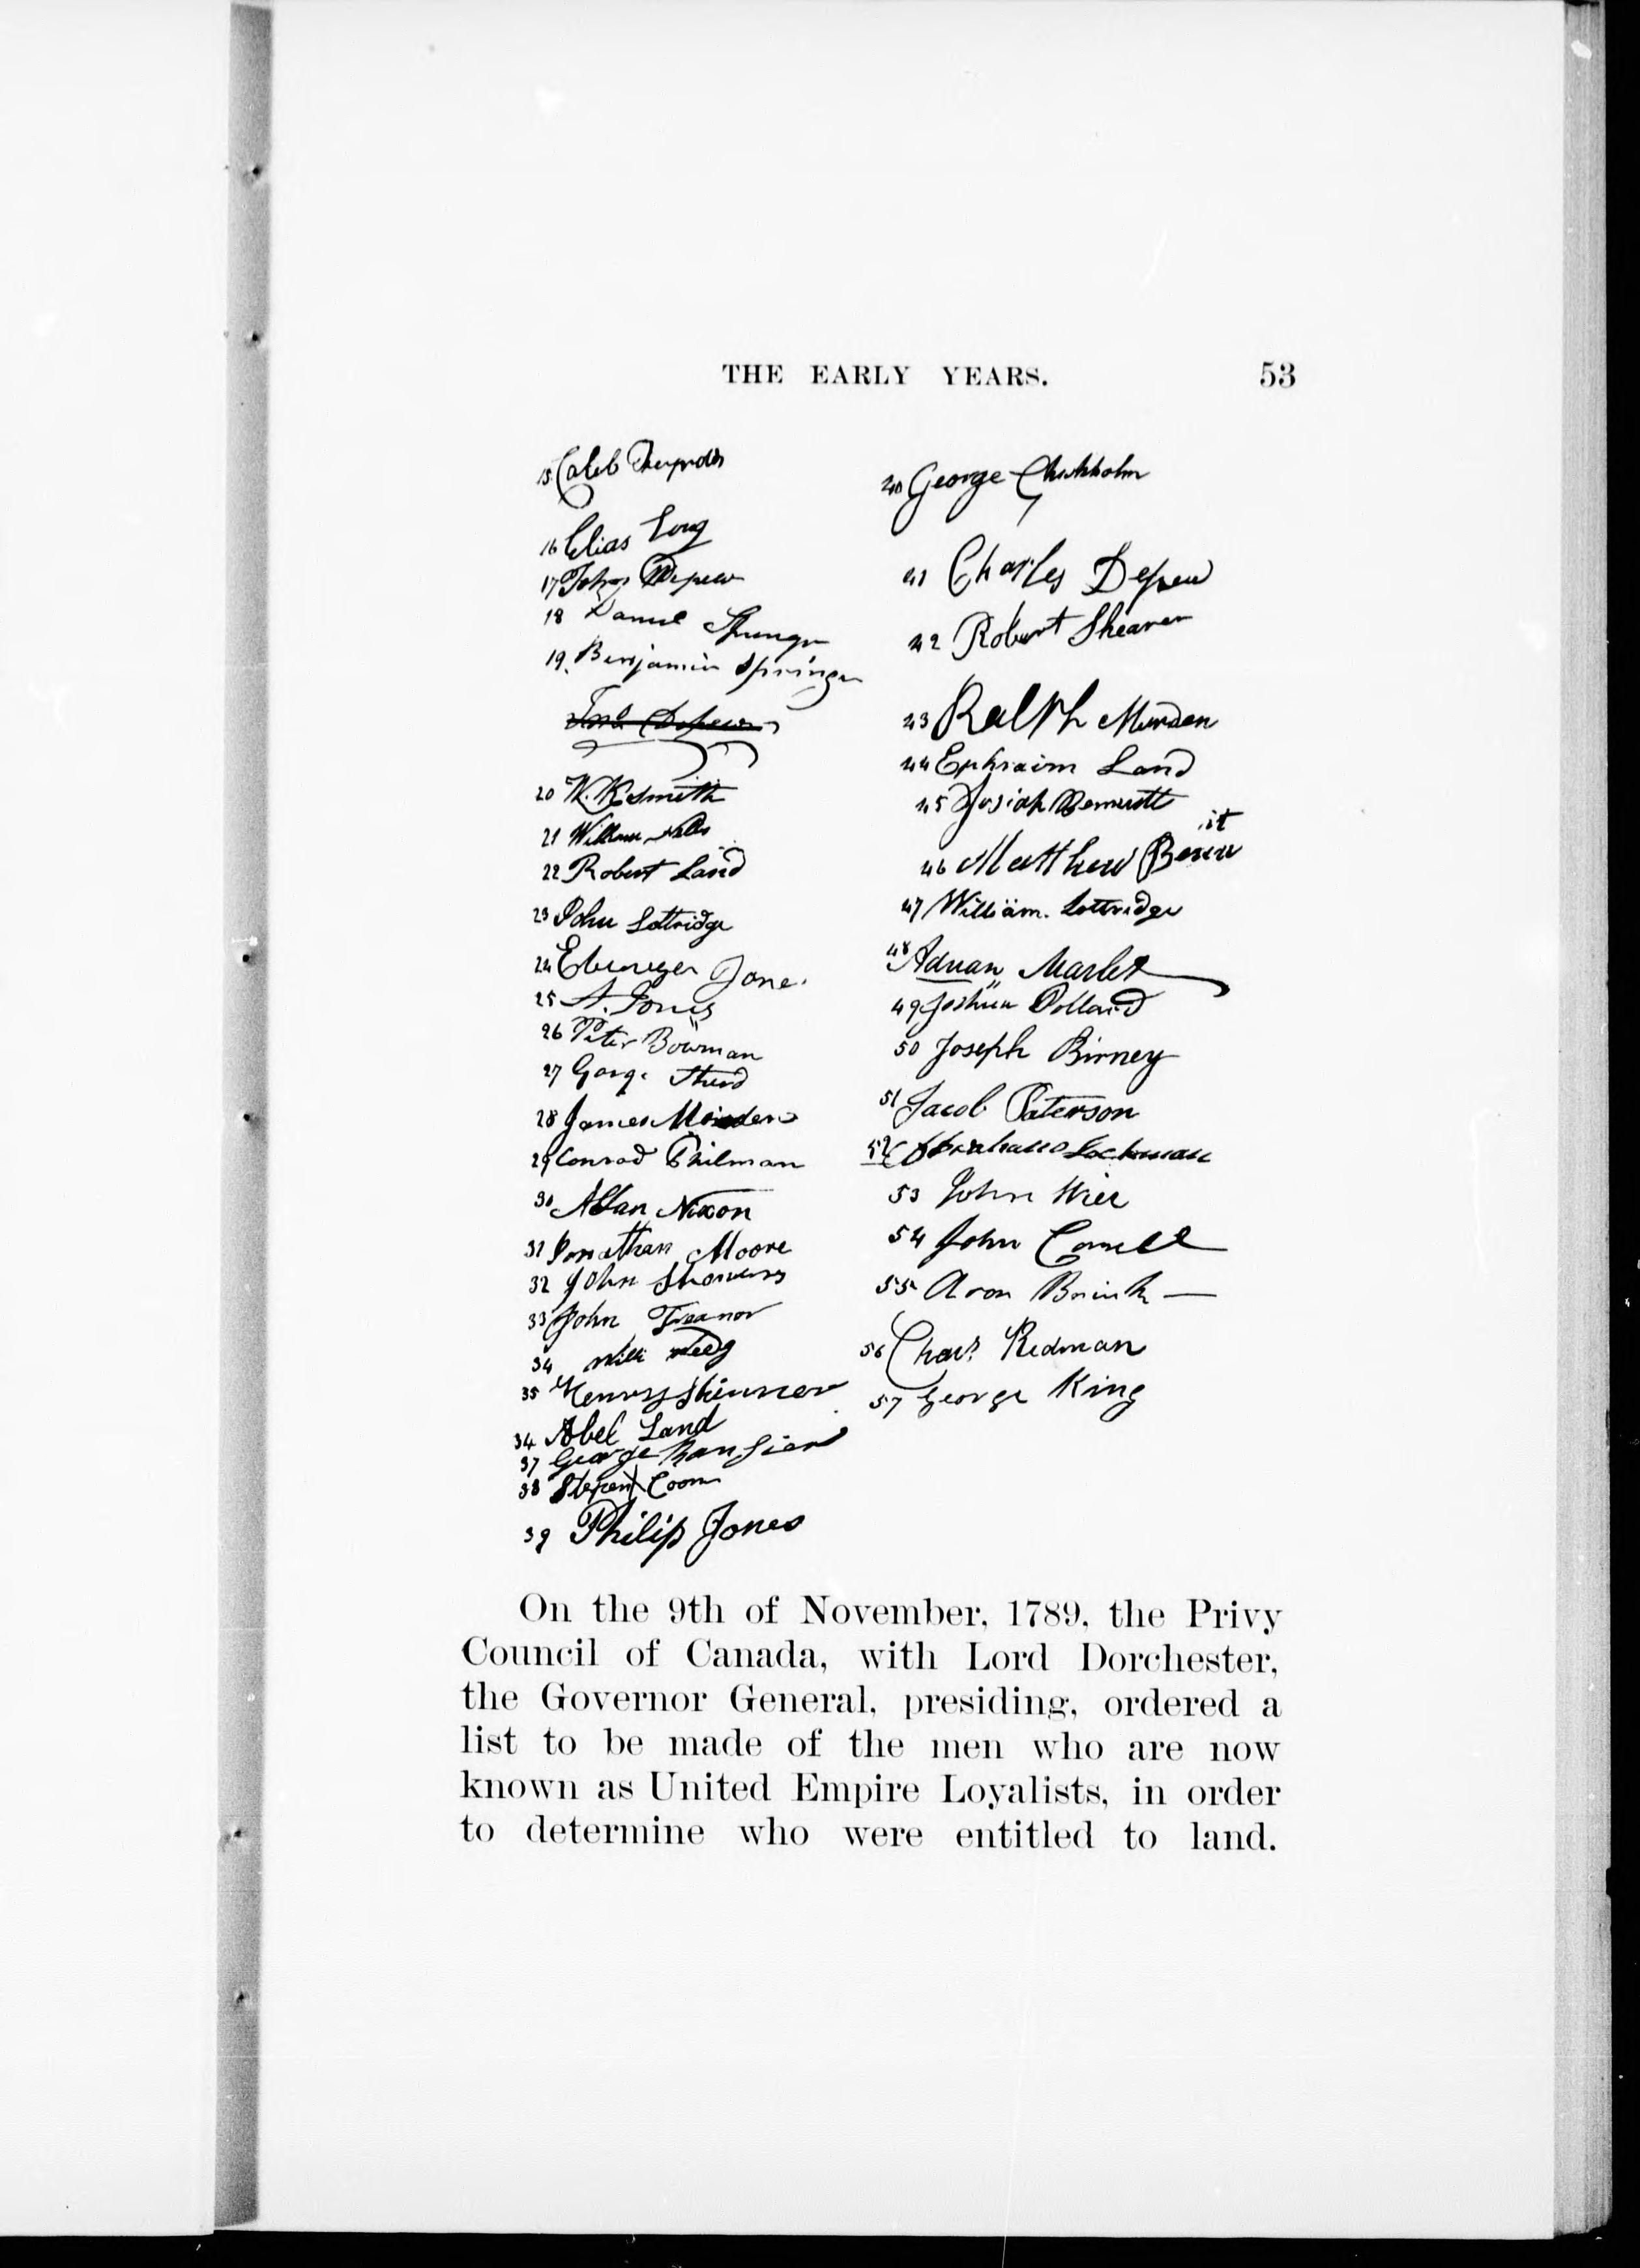 THE EARLY YEARS. 53
15 Caleb Reynolds
16 Elias Long
17 John Depew
18 Daniel Springer
19. Benjamin Springer
Depew
20 W. Kesmith
21 William
22 Robert Land
23 John Lottridge
24 Ebenezer Jone.
25 A. Jones
26 Peter Bowman
27 Gorge
28 James Morden
29 Conrad Philman
30 Allan Nixon
31 Jonathan Moore
32 John Showers
33 John Treanor
34 Will Reed
35 Henry Skinner
34 Abel Land
37 George Ransier
38 Stepen Coon
39 Philip Jones
40 George Chishholm
41 Charles Depew
42 Robert Shearer
43 Ralph Morden
44 Ephraim Land
45 Josiah
46 Matthew
it
47 William. Lottridge
48 Adrian Marlet
49 Joshua Pollard
50 Joseph Birney
51 Jacob Paterson
52 Abraham Lockman
53 John Wier
54 John Cornell
55 Aron Brink —
56 Chas. Redman
57 George King
On the 9th of November, 1789, the Privy
Council of Canada, with Lord Dorchester,
the Governor General, presiding, ordered a
list to be made of the men who are now
known as United Empire Loyalists, in order
to determine who were entitled to land.